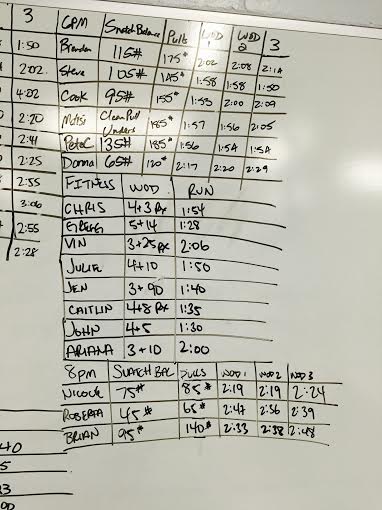 3
1:50
2:02
4:02
2:20
2:41
2:25
2:55
3:06
2:55
2:28
6PM Snatch Balance Pulls WOD 1 WOD 2 3
Brendan 115# 175# 2:02 2:08 2:14
Steve 105# 145# 1:58 1:58 1:50
Cook 95# 155# 1:53 2:00 2:09
Clean Pull Unders 185# 1:57 1:56 2:05
PeteC 135# 185# 1:56 1:54 1:54
Donna 65# 120# 2:17 2:20 2:29
FITNESS WOD RUN
CHRIS 4+3 Rx 1:54
GREGG 5+14 1:28
VIN 3+25 Rx 2:06
JULIE 4+10 1:50
JEN 3+90 1:40
CAITLIN 4+8 Rx 1:35
JOHN 4+5 1:30
ARIANA 3+10 2:00
8PM SNATCH BAL PULLS WOD 1 WOD 2 WOD 3
NICOLE 75# 85# 2:19 2:19 2:24
ROBERTA 45# 65# 2:47 2:36 2:39
BRIAN 95# 140# 2:33 2:38 2:48
40
5
23
00